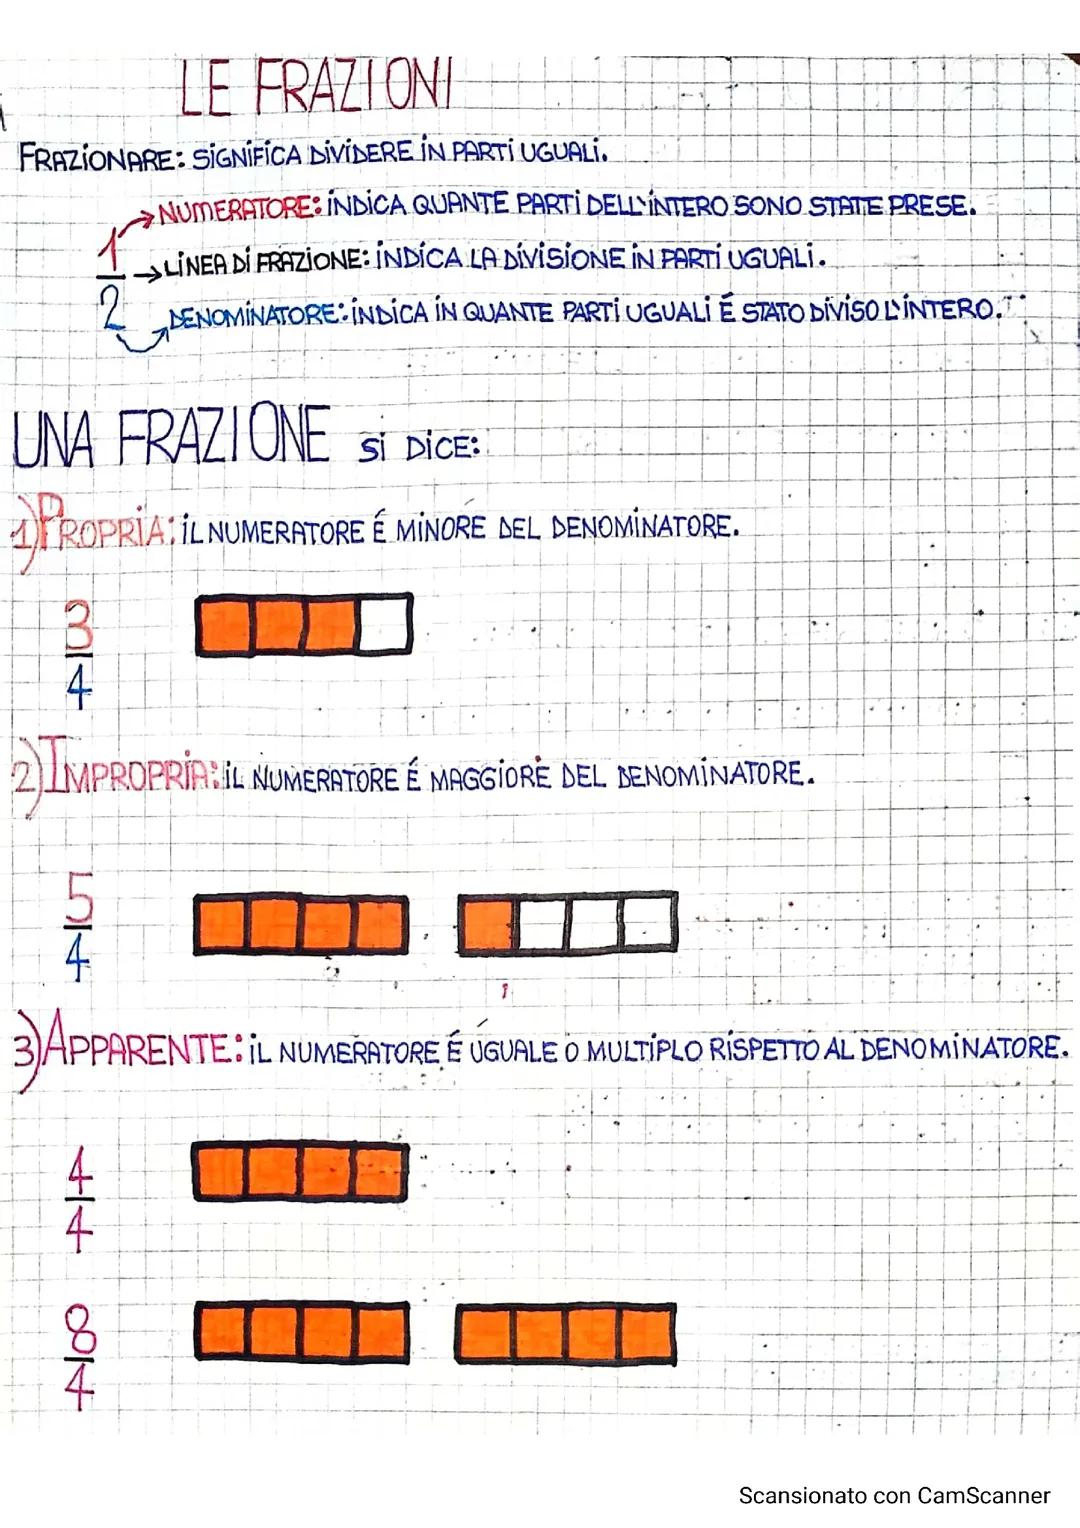 LE FRAZIONI
FRAZIONARE: SIGNIFICA DIVIDERE IN PARTI UGUALI.
NUMERATORE: INDICA QUANTE PARTI DELL'INTERO SONO STATE PRESE.
1
LINEA DI FRAZIONE: INDICA LA DIVISIONE IN PARTI UGUALI.
2
DENOMINATORE: INDICA IN QUANTE PARTI UGUALI É STATO DIVISO L'INTERO.
UNA FRAZIONE SI DICE:
1) PROPRIA: IL NUMERATORE É MINORE DEL DENOMINATORE.
3
4
2) IMPROPRIA: IL NUMERATORE É MAGGIORE DEL DENOMINATORE.
5
4
3) APPARENTE: IL NUMERATORE É UGUALE O MULTIPLO RISPETTO AL DENOMINATORE.
4
4
8
4
Scansionato con CamScanner